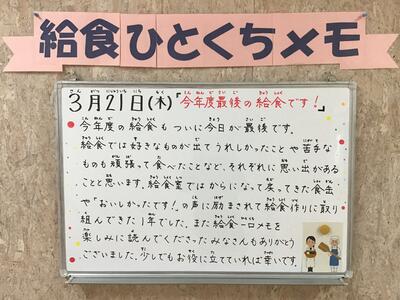 給食ひとくちメモ
3月21日(木)「今年度最後の給食です!
今年度の給食もついに今日が最後です。
給食では好きなものが出てうれしかったことや苦手な
ものも頑張って食べたことなど、それぞれに思い出がある
ことと思います。給食室ではからになって戻ってきた食缶
や「おいしかったです!」の声に励まされて給食作りに取り
組んできた1年でした。また給食一口メモを
楽しみに読んでくださったみなさんもありがとう
ございました。少しでもお役に立てていれば幸いです。